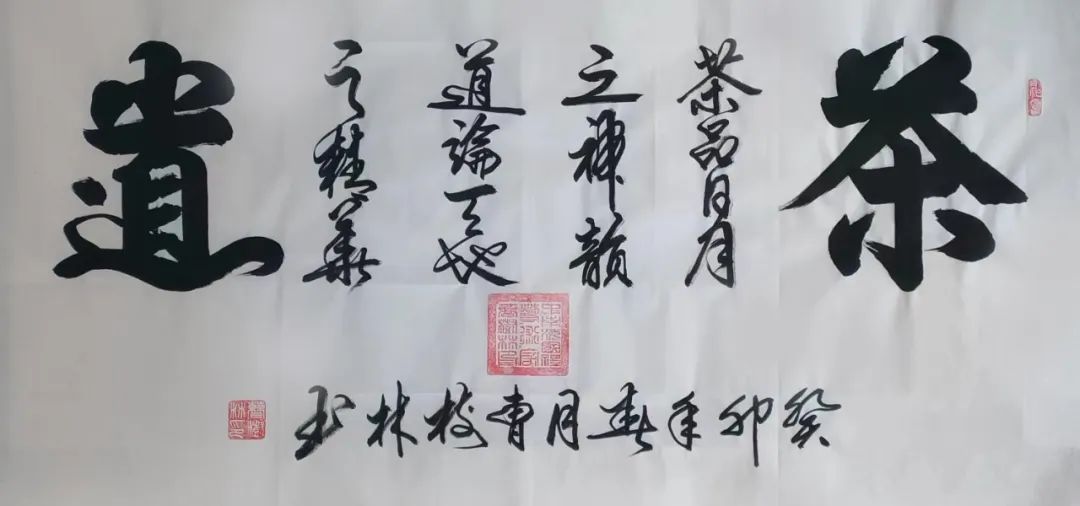 茶
茶品日月
之神韻
道論天地
之精華
道
癸卯年春月曹树林书